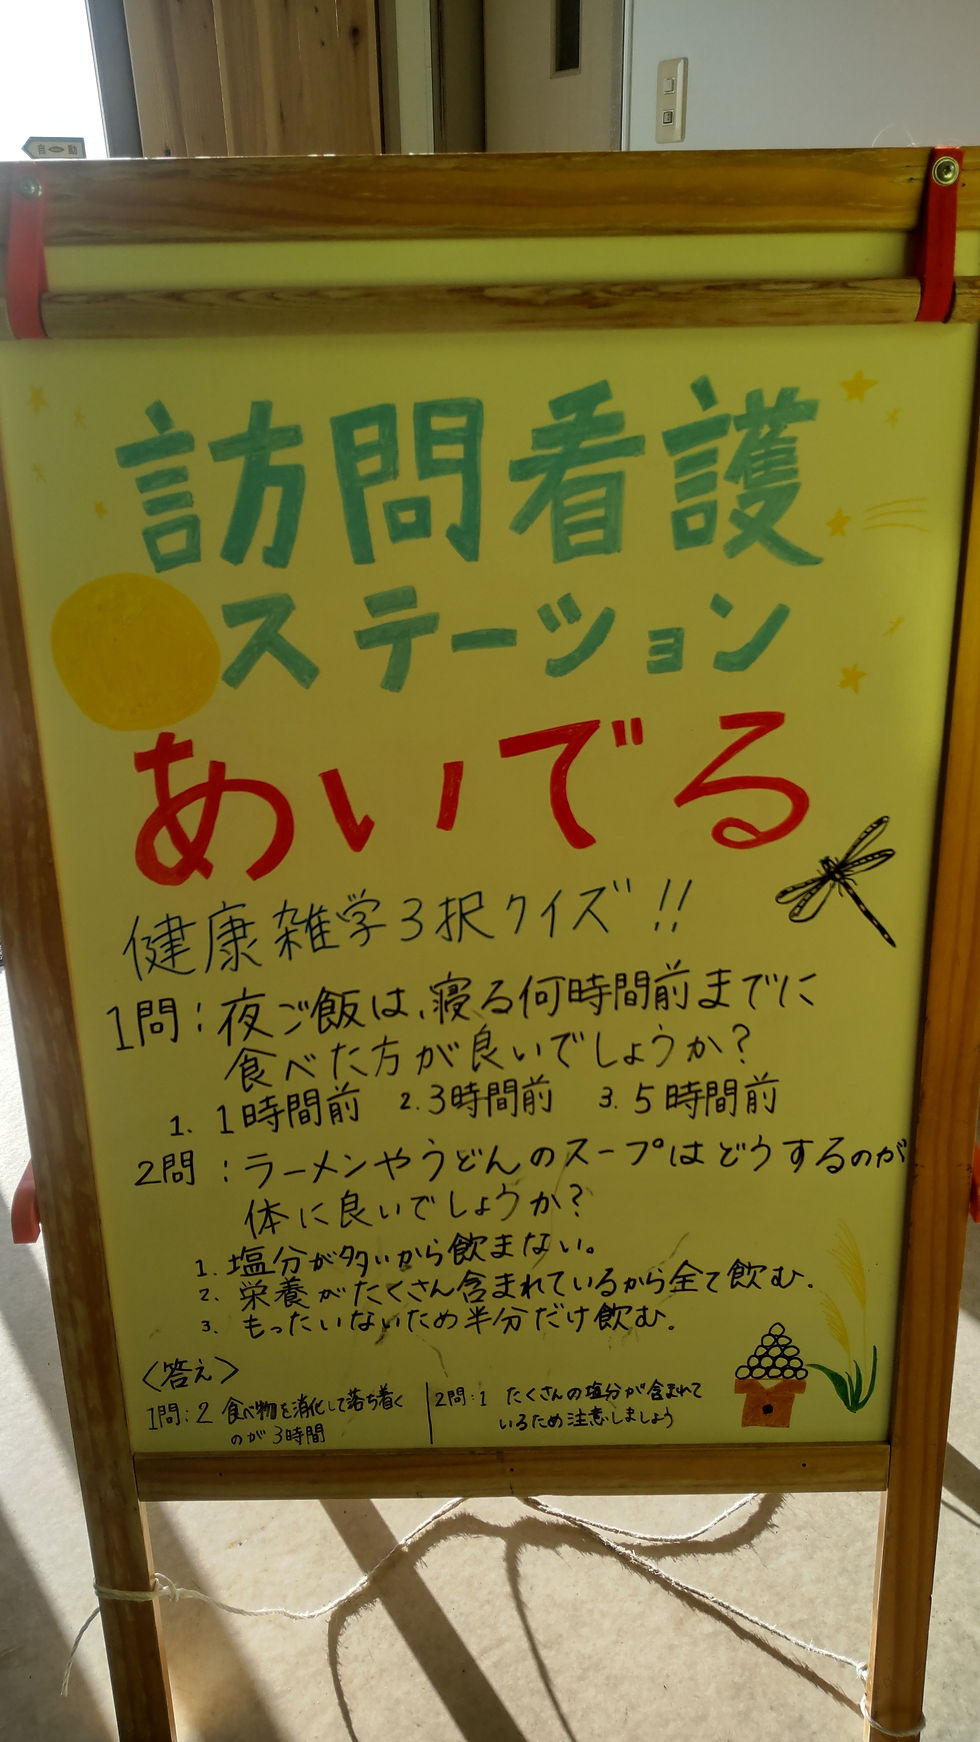 自動
訪問看護
ステーション
あいでる
健康雑学3択クイズ!!
1問:夜ご飯は、寝る何時間前までに
食べた方が良いでしょうか?
1. 1時間前 2. 3時間前 3. 5時間前
2問:ラーメンやうどんのスープはどうするのが
体に良いでしょうか?
1. 塩分が多いから飲まない。
2. 栄養がたくさん含まれているから全て飲む.
3. もったいないため半分だけ飲む.
〈答え〉
1問:2 食べ物を消化して落ち着く
のが3時間
2問:1 たくさんの塩分が含まれて
いるため注意しましょう